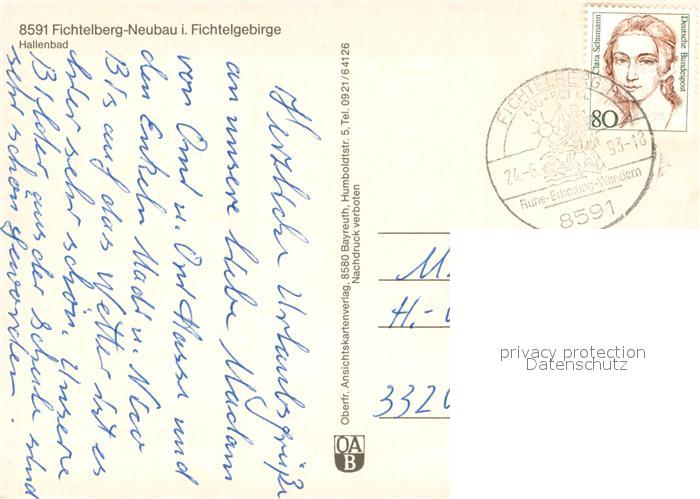 8591 Fichtelberg-Neubau i. Fichtelgebirge
Hallenbad
Herzliche Urlaubsgrüße
an unsere liebe Madam
von Omi u. Opi Hasse und
den Enkeln Madi u. Nico
Bis auf das Wetter ist es
hier sehr schön. Unsere
Bilder aus der Scheibe sind
sehr schön geworden.
Oberfr. Ansichtskartenverlag, 8580 Bayreuth, Humboldtstr. 5, Tel. 0921/64126
Nachdruck verboten
OA
B
Clara Schumann
Deutsche Bundespost
80
FICHTELBERG
24-6 93-18
Ruhe-Erholung-Wandern
8591
M
H.-
332
privacy protection
Datenschutz